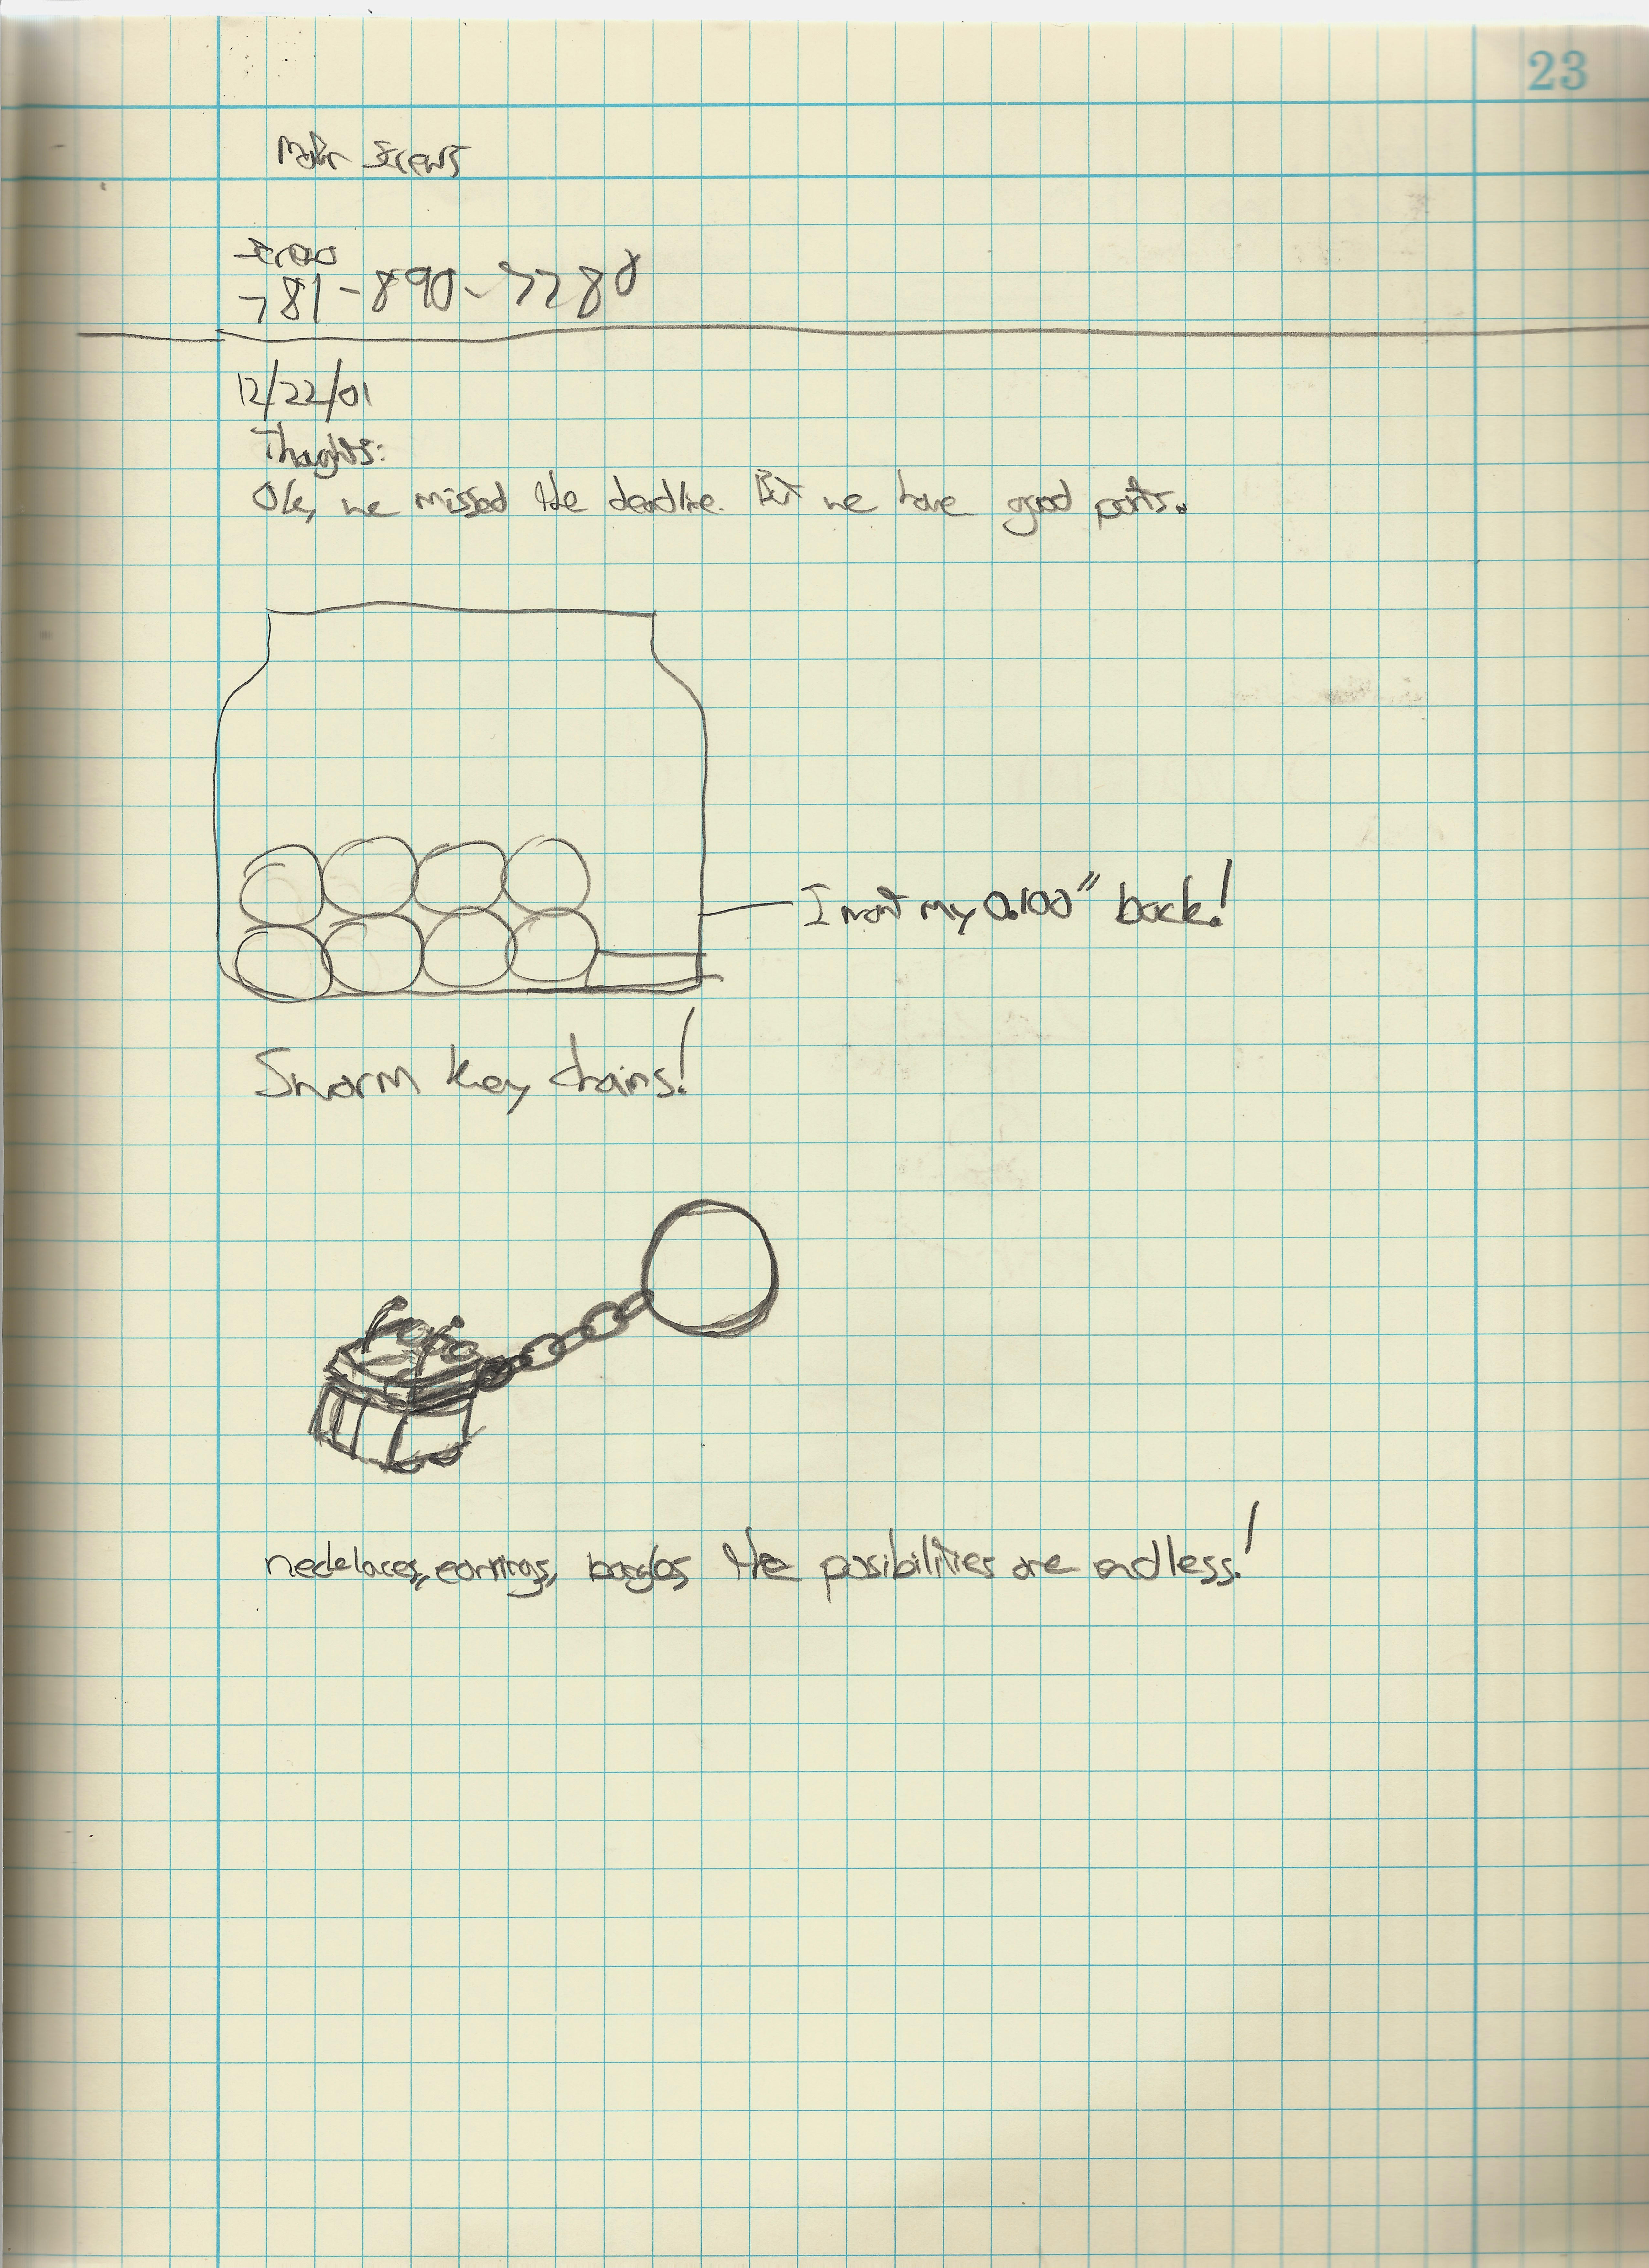 23
Motor Screws
Screws
781-890-7780
12/22/01
Thoughts:
Ok, we missed the deadline. But we have good parts.
I want my 0.100" back!
Swarm Key chains!
necklaces, earrings, bangles the posibilities are endless!